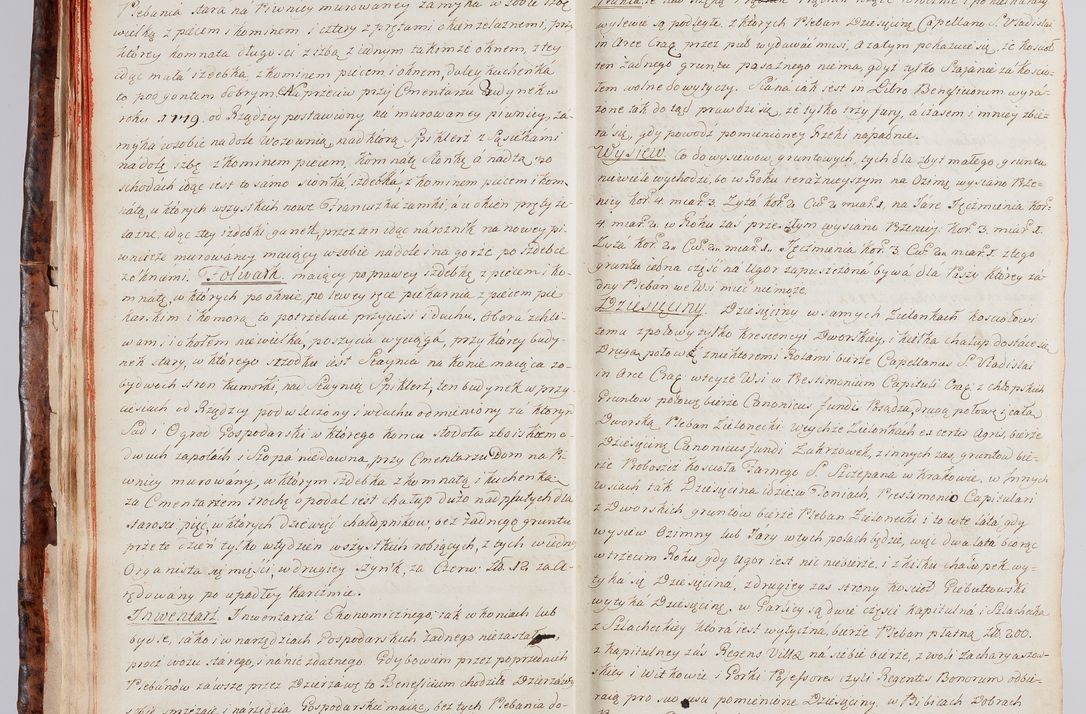 Plebania stara na Piwnicy murowaney zamyka w sobie Izbę
wielką z piecem i kominem, i cztery z prętami okien żelaznemi, przy
ktorey komnata długości z izbą, z iednym takimże oknem, z tey
idąc mała izdebka, z kominem, piecem i oknem, daley kuchenka
to pod gontem dobrym. Naprzeciw przy Cmentarzu Budynek w
roku 1779. od Rządzcy postawiony na murowaney piwnicy, za-
myka w sobie na dole Wozownią, nad którą Spiklerz z Sąsiekami
na dole izbę z kominem piecem, komnatę Sionkę a nadto, po
schodach idąc iest to samo sionka, izdebka, z kominem piecem i kom-
natą, u których wszystkich nowe Francuzkie zamki, a u okien pręty że-
lazne, idąc z tey izdebki ganek, przez tan idąc narożnik na nowey pi-
wnicze murowaney maiący w sobie na dole i na gorze po izdebce
z oknami. Folwark. maiący po prawey izdebkę z piecem i ko-
mnatą, w których po oknie po lewey ręce piekarnia z piecem pie-
karskim i komorą, to potrzebuie przyciesi i dachu, Obora z chle-
wami i chołem niewielka, poszycia wyciąga, przy ktorey budy-
nek stary, w którego srzodku iest Staynia na konie maiąca z o-
bydwoch stron kumorki, nad Staynią Spiklerz, ten budynek w przy-
ciesiach od Rządzcy podwleczony i w dachu odmieniony za którym
Sad i Ogrod Gospodarski w którego koncu stodoła z boiskiem o
dwuch zapolach i Szopa niedawna, przy Cmentarzu Dom na Pi-
wnicy murowany, w którym izdebka z komnatą i kuchenką
za Cmentarzem trochę opodal iest chałup dużo nadpsutych dla
starości pięć, w których dziewięć chałupników, bez żadnego gruntu
przeto dzień tylko w tydzień wszystkich robiących, z tych w iedney
Organista się mieści, w drugiey szynk, za Czerw: Zł. 12. za A-
rędowany po upadłey karczmie.
Inwentarz. Inwentarza Ekonomicznego, iak w koniach lub
bydle, iako i w narzędziach Gospodarskich żadnego niezastał,
procz wozu starego, i na nic zdatnego. Gdyż bowiem przez poprzednich
Plebanów zawsze przez Dzierzawę to Beneficium chodziło Dzierżawcy
swoie sprzężaie i narzędzia Gospodarskie maiąc, bez tych Plebania do-
wylewie są podległe, z których Pleban Dziesięcinę Capellano S. Vladislai
in Arce Crac: przez pub wydawać musi, A zatym pokazuie się, że kościoł
ten żadnego gruntu posażnego niema, gdyż tylko Staianie za kościo-
łem wolne do wytyczy. Siana iak iest in Libro Beneficiorum wyra-
żone tak dotąd prawdzi się, że tylko trzy fury, a czasem i mniey zbie-
ra się, gdy powodź pomienioney Rzeki napadnie.
Wysiew. Co do wysiewow gruntowych, tych dla zbyt małego gruntu
niewiele wychodzi, bo w Roku teraźnieyszym na Ozimę wysiano Psze-
nicy kor: 4. miar: 3. Żyta kor: 3. Cw: 3. miar: 1. na Jare Jęczmienia kor:
4. miar: 2. w Roku zaś przeszłym wysiano Pszenicy: kor: 3. miar: 1.
Żyta kor: 2. Cw: 2. miar: 1. Jęczmienia kor: 3. Cw: 2. miar: 1. z tego
gruntu iedna część na Ugor zapuszczona bywa dla Paszy ktorey ża-
dny Pleban we Wsi mieć nie może.
Dziesięciny. Dziesięciny w samych Zielonkach kościołowi
temu z połowy tylko krescencyi Dworskiey, i kilka chałup dostaie się
Drugą połowę z niektoremi Rolami bierze Capellanus S. Vladislai
in Arce Crac: w teyże Wsi in Prestimonium Capituli Crac: z chłopskich
Gruntow połowę bierze Canonicus fundi Rządza, drugą połowę i całą
Dworską Pleban Zielonecki w tychże Zielonkach ex certis Agris, bierze
Dziesięcinę Canonicus fundi Zakrzowek, z innych zaś gruntow bie-
rze Proboszcz kościoła Farnego S. Szczepana w Krakowie, w Innych
Wsiach tak Dziesięcina idzie w Toniach, Prestimonio Capitulari
z Dworskich gruntow bierze Pleban Zielonecki i to w te lata, gdy
wysiew Ozimny lub Jary w tych polach będzie, więc dwa lata biorąc
w trzecim Roku gdy Ugor iest nic niebierze. z kilku chałupek wy-
tyka się Dziesięcina, z drugiey zaś strony kościoł Giebułtowski
wytyka Dziesięcinę. w Garlicy są dwie części kapitulna i Szlachecka
z Szlacheckiey która iest wytyczna, bierze Pleban płatną Zł. 200.
z kapitulney zaś Regens Villæ na siebie bierze, z wsi Zacharyaszow-
skiey i Witkowic i Gorki Possessores czyli Regentes Bonorum odbie-
raią pro suo usu pomienione Dziesięciny, w Bibicach Dobrach